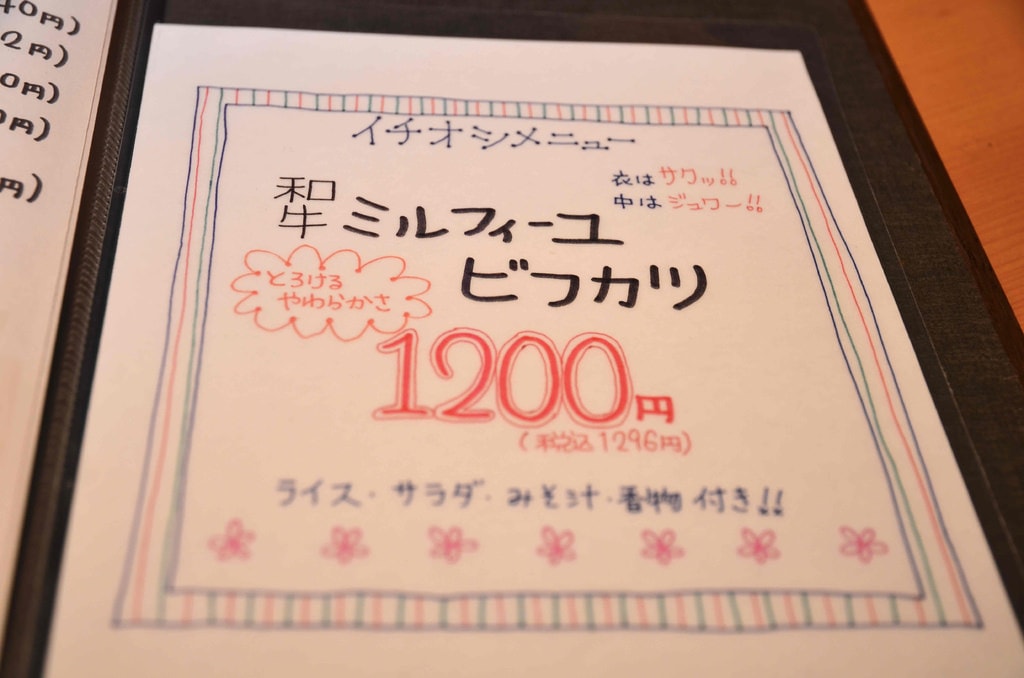 40円)
2円)
0円)
0円)
円)
イチオシメニュー
衣はサクッ!!
中はジュワー!!
和牛ミルフィーユ
ビフカツ
とろける
やわらかさ
1200円
(税込1296円)
ライス・サラダ・みそ汁・香物 付き!!